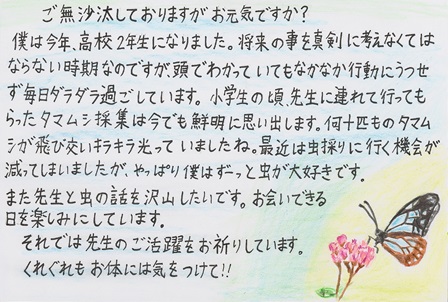 ご無沙汰しておりますが お元気ですか?
僕は今年、高校2年生になりました。将来の事を真剣に考えなくては
ならない時期なのですが、頭でわかっていてもなかなか行動にうつせ
ず毎日ダラダラ過ごしています。小学生の頃、先生に連れて行っても
らったタマムシ採集は今でも鮮明に思い出します。何十匹ものタマム
シが飛び交いキラキラ光っていましたね。最近は虫採りに行く機会が
減ってしまいましたが、やっぱり僕はずーっと虫が大好きです。
また先生と虫の話を沢山したいです。お会いできる
日を楽しみにしています。
それでは先生のご活躍をお祈りしています。
くれぐれもお体には気をつけて!!